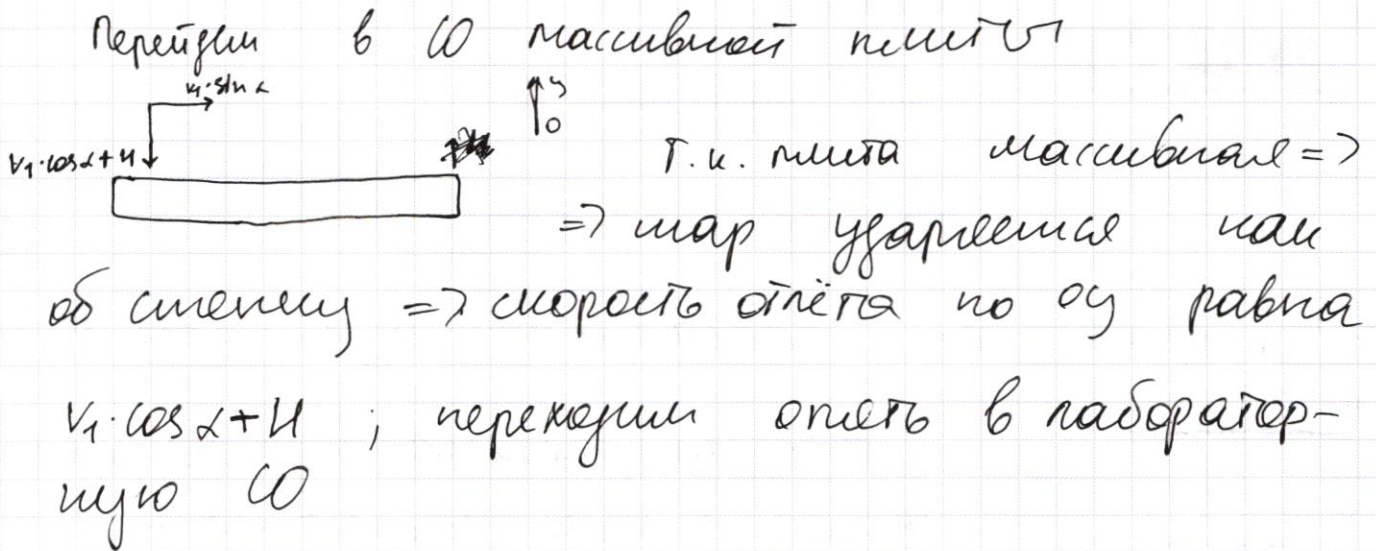 Перейдём в СО массивной плиты
v₁·sin α
y
0
v₁·cosα+U
Т.к. плита массивная =>
=> шар ударяется как
об стенку => скорость отлёта по oy равна
v₁·cosα+U ; переходим опять в лаборатор-
ную СО